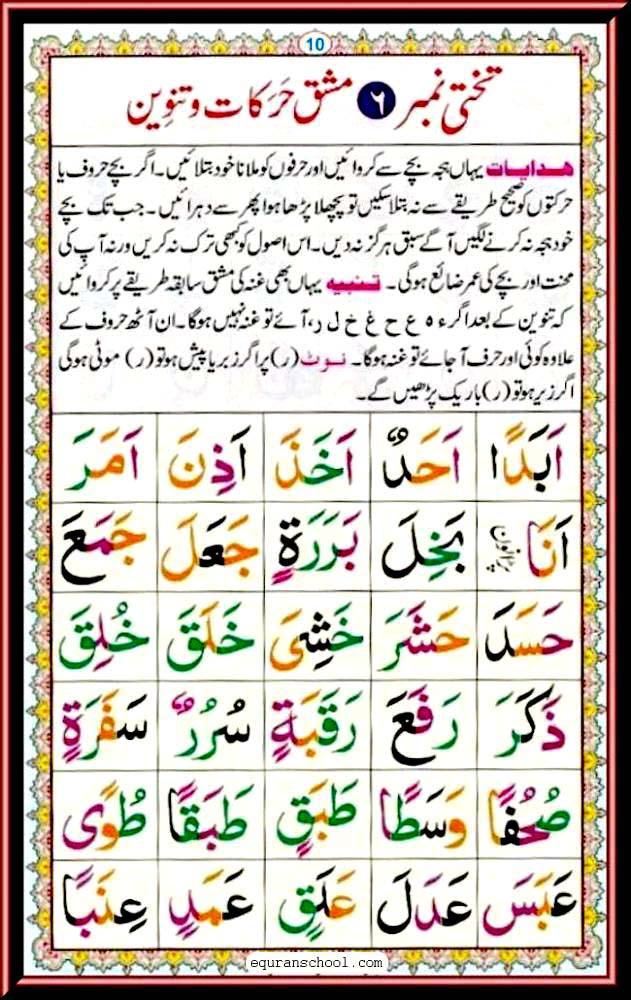 10
تختی نمبر ۶ مشق حرکات و تنوین
ھدایات یہاں ہجہ بچے سے کروائیں اور حرفوں کو ملانا خود بتلائیں۔ اگر بچے حروف یا
حرکتوں کو صحیح طریقے سے نہ بتلا سکیں تو پچھلا پڑھا ہوا پھر سے دہرائیں۔ جب تک بچے
خود ہجہ نہ کرنے لگیں آگے سبق ہرگز نہ دیں۔ اس اصول کو کبھی ترک نہ کریں ورنہ آپ کی
محنت اور بچے کی عمر ضائع ہوگی۔ تنبیہ یہاں بھی غنہ کی مشق سابقہ طریقے پر کروائیں
کہ تنوین کے بعد اگر ء ہ ع ح غ خ ل ر، آئے تو غنہ نہیں ہوگا۔ ان آٹھ حروف کے
علاوہ کوئی اور حرف آجائے تو غنہ ہوگا۔ نوٹ (ر) پر اگر زبر یا پیش ہو تو (ر) موٹی ہوگی
اگر زیر ہو تو (ر) باریک پڑھیں گے۔
اَبَدًا اَحَدٌ اَخَذَ اَذِنَ اَمَرَ
اَنَا بَخِلَ بَرَرَةٍ جَعَلَ جَمَعَ
حَسَدَ حَشَرَ خَشِیَ خَلَقَ خُلِقَ
ذَكَرَ رَفَعَ رَقَبَةٍ سُرُرٌ سَفَرَةٍ
صُحُفًا وَسَطًا طَبَقٍ طَبَقًا طُوًی
عَبَسَ عَدَلَ عَلَقٍ عَمَدٍ عِنَبًا
equranschool.com